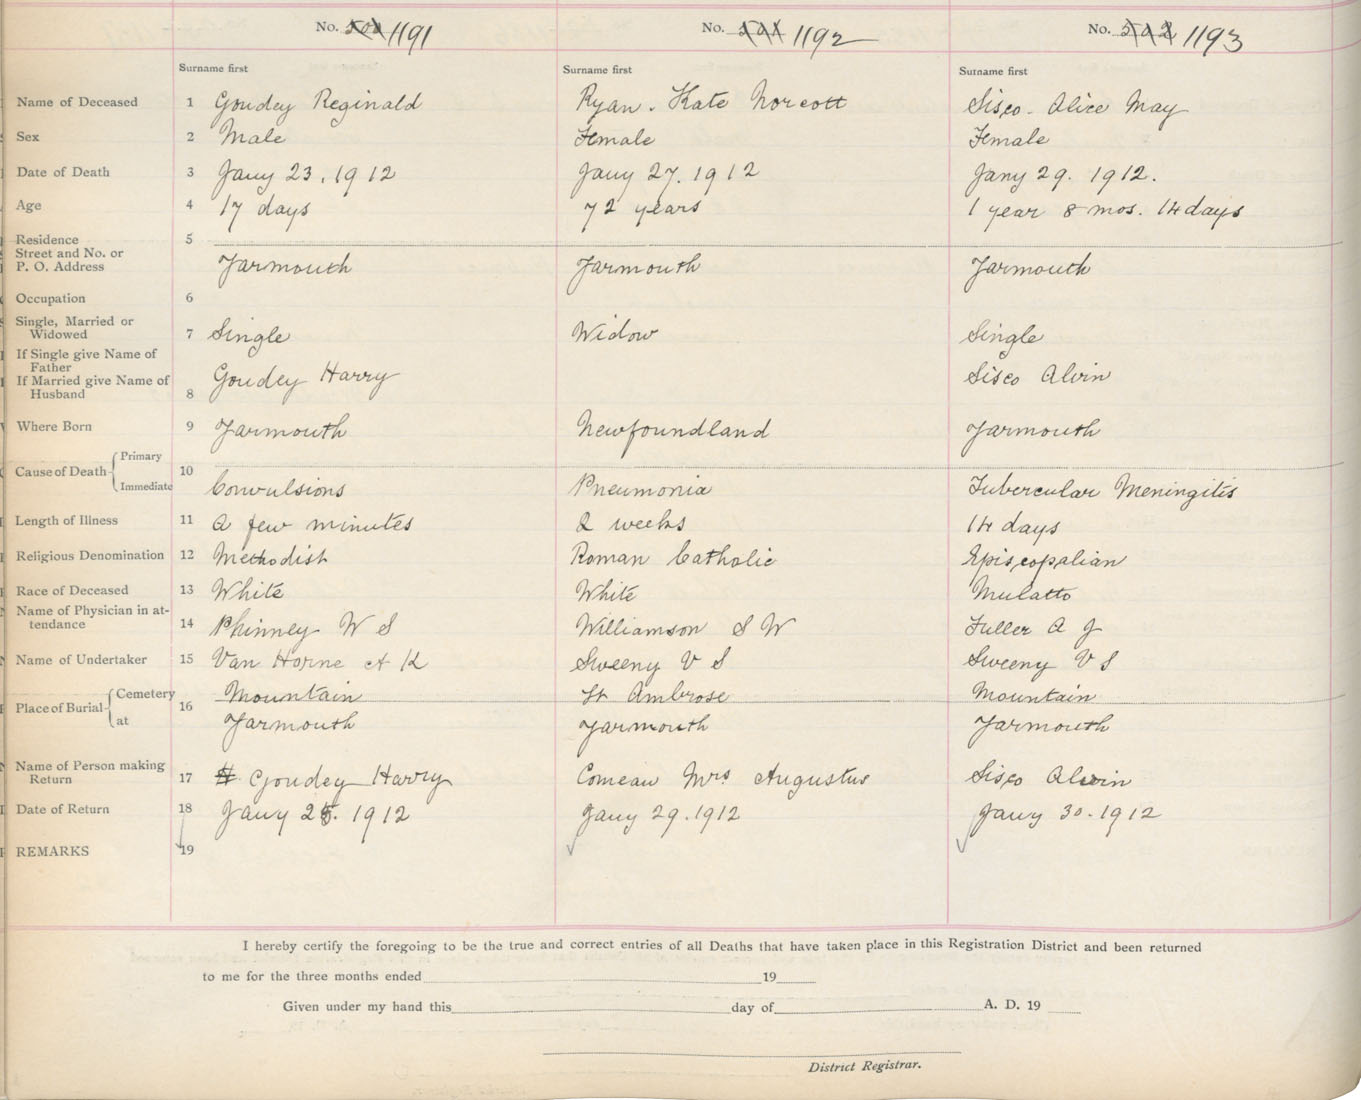 No. 500 1191 No. 501 1192 No. 502 1193
Surname first Surname first Surname first
Name of Deceased 1 Goudey Reginald Ryan. Kate Norcott Sisco. Alice May
Sex 2 Male Female Female
Date of Death 3 Jany 23. 1912 Jany 27. 1912 Jany 29. 1912.
Age 4 17 days 72 years 1 year 8 mos. 14 days
Residence 5
Street and No. or
P. O. Address Yarmouth Yarmouth Yarmouth
Occupation 6
Single, Married or
Widowed 7 Single Widow Single
If Single give Name of
Father
If Married give Name of Goudey Harry Sisco Alvin
Husband 8
Where Born 9 Yarmouth Newfoundland Yarmouth
Primary
Cause of Death 10
Immediate Convulsions Pneumonia Tubercular Meningitis
Length of Illness 11 A few minutes 2 weeks 14 days
Religious Denomination 12 Methodist Roman Catholic Episcopalian
Race of Deceased 13 White White Mulatto
Name of Physician in at-
tendance 14 Phinney W S Williamson S W Fuller A J
Name of Undertaker 15 Van Horne A K Sweeny V S Sweeny V S
Cemetery Mountain St Ambrose Mountain
Place of Burial 16
at Yarmouth Yarmouth Yarmouth
Name of Person making
Return 17 H Goudey Harry Comeau Mrs Augustus Sisco Alvin
Date of Return 18 Jany 25. 1912 Jany 29. 1912 Jany 30. 1912
REMARKS 19
I hereby certify the foregoing to be the true and correct entries of all Deaths that have taken place in this Registration District and been returned
to me for the three months ended 19
Given under my hand this day of A. D. 19
District Registrar.